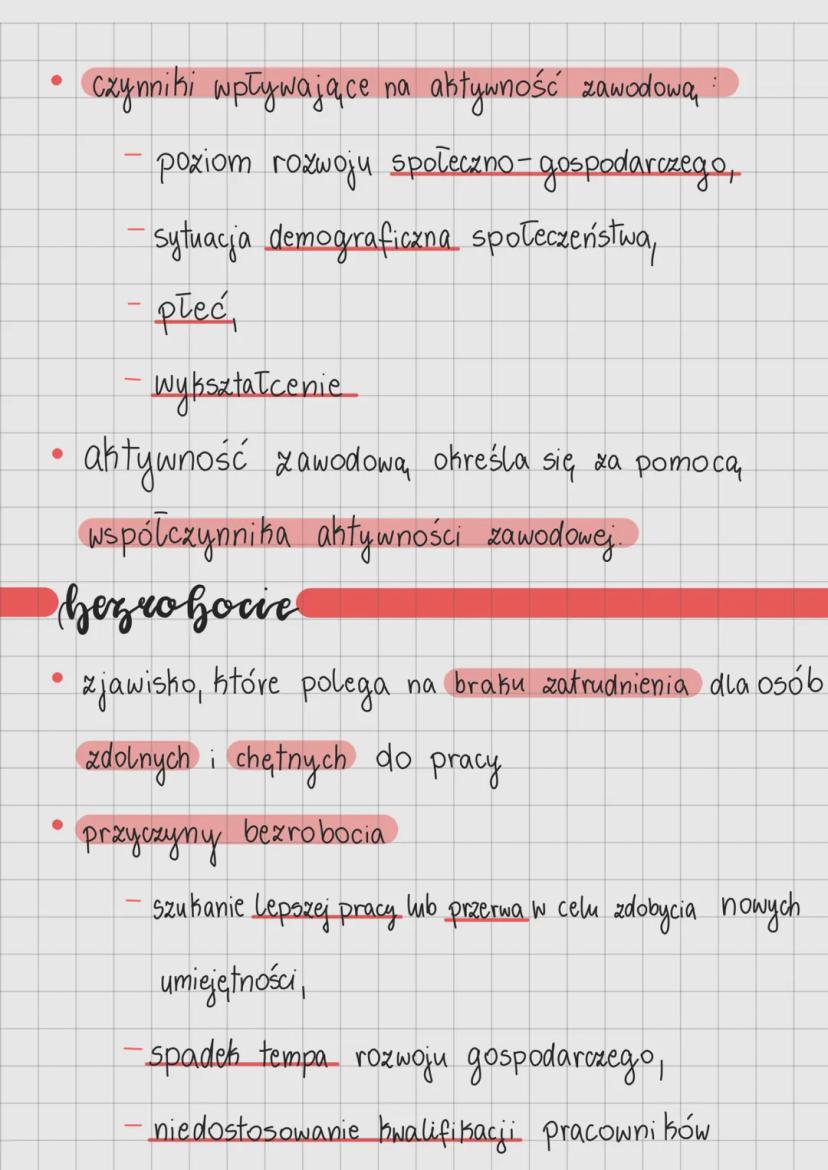 • czynniki wpływające na aktywność zawodową:
– poziom rozwoju społeczno-gospodarczego,
– sytuacja demograficzna społeczeństwa,
– płeć,
– wykształcenie
• aktywność zawodową określa się za pomocą
współczynnika aktywności zawodowej.
bezrobocie
• zjawisko, które polega na braku zatrudnienia dla osób
zdolnych i chętnych do pracy
• przyczyny bezrobocia
– szukanie lepszej pracy lub przerwa w celu zdobycia nowych
umiejętności,
– spadek tempa rozwoju gospodarczego,
– niedostosowanie kwalifikacji pracowników